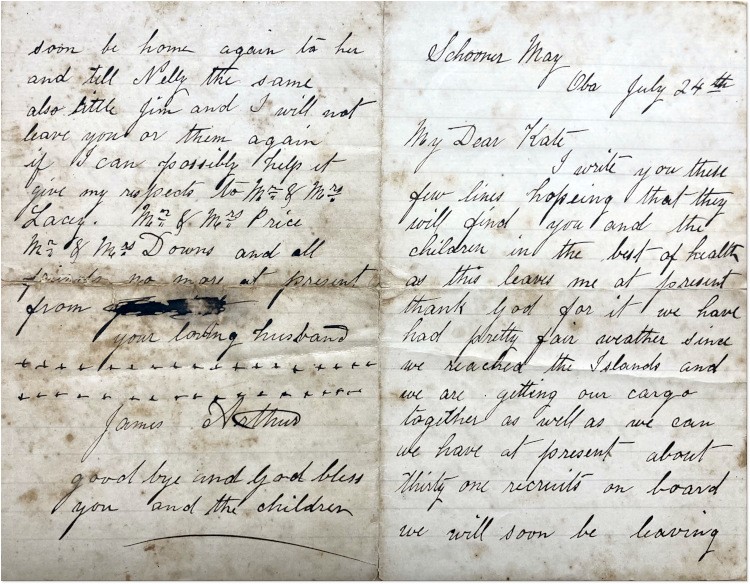 Schooner May
Oba July 24th
My Dear Kate
I write you these
few lines hopeing that they
will find you and the
children in the best of health
as this leaves me at present
thank God for it we have
had pretty fair weather since
we reached the Islands and
we are getting our cargo
together as well as we can
we have at present about
thirty one recruits on board
we will soon be leaving
soon be home again to her
and tell Nelly the same
also little Jim and I will not
leave you or them again
if I can possibly help it
give my respects to Mr & Mrs
Lacey. Mr & Mrs Price
Mr & Mrs Downs and all
friends no more at present
from
your loving husband
+ + + + + + + + + + + + + + + + +
+ + + + + + + + + + + + + + + + +
James Arthur
good bye and God bless
you and the children